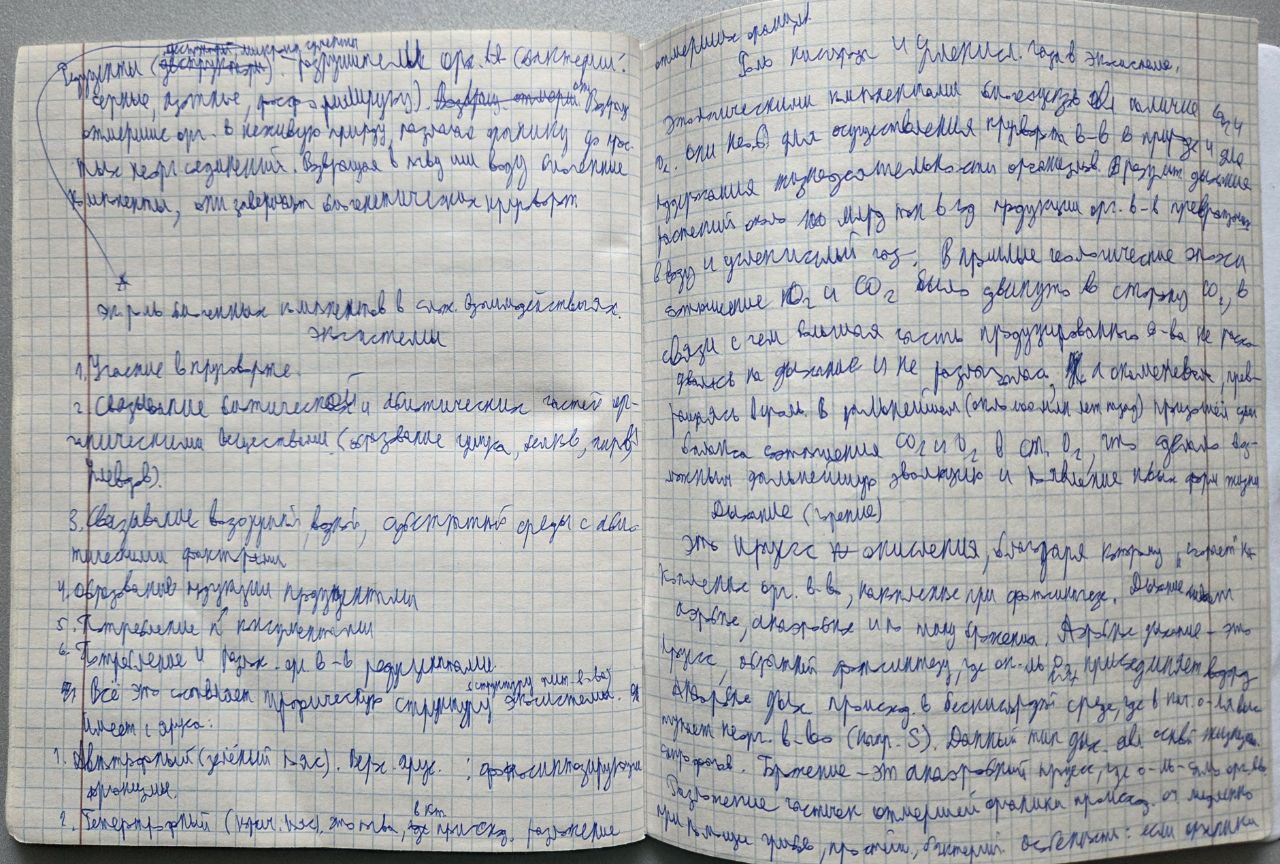 Редуценты (деструкторы). разрушители орг. в-в (бактерии:
серные, азотные,
отмерших орг. в неживую природу, разлагая органику до прос-
тых неорг. соединений. Возвращая в почву или воду биогенные
компоненты, они завершают биогенетический круговорт
Эк. роль биогенных компонентов в слож. взаимодействиях.
Экосистемы
1. Участие в круговорте.
2. Связывание биотической и абиотических частей ор-
ганическими веществами (образвание гумуса, белков, жиров,
углевдов).
3. Связывание воздушной, водной, среды с абио-
тическими факторами
4. Образование продукции продуцентами
5. Потребление п. консументами
6. Потребление и разлож. орг в-в редуцентами.
7. Всё это составляет трофическую структуру (структуру пит. в-в) экосистемы.
Имеет 2 яруса:
1. Автотрофный (зелёный пояс). Верх. ярус. : фотосинтезирующие
организмы.
2. Гетеротрофный (корич. пояс), это почва, в кот. происход. разложение
отмерших организм.
Роль кислорода и углекисл. газа в экосистеме.
компонентами биогеоценоза явл наличие CO2 и
O2. Они необ для осуществления круговорта в-в в природе и для
поддержания жизнедеятельности организмов. В результ. дыхания
растений около 100 млрд тон в год продукции орг. в-в превращается
в воду и углекислый газ. В прошлые геологические эпохи
отношение O2 и CO2 было сдвинуто в сторону CO2, в
связи с чем большая часть продуцированного в-ва не расхо-
двалась на дыхание и не разлагалась, а окаменевала, прев-
ращаясь в В дальнейшем (около млн лет назад) произошёл сдви
баланса соотношения CO2 и O2 в ст. O2, что сделало воз-
можным дальнейшую эволюцию и появление новых форм жизни
Дыхание (горение)
Это процесс окисления, благодаря которому "сгорает" на-
копленные орг. в-ва, накпленные при фотосинтезе. Дыхание
аэробное, анаэробное и по типу брожения. Аэробне дыхание - это
процесс, обратный фотосинтезу, где ок-ль O2 присоединяет водород
Анаэробне дых. происход. в бескислордной среде, где в кач. о-ля выс
тупает неорг. в-во (напр. S). Данный тип дых. явл основй жизнедея.
сапрофагов. Брожение - эт анаэробний процесс, где о-ль - само орг. в-во
Разложение частичек отмершей органики происход. оч медленно
при помощи грибов, простейш, бактерий. Особенности: если органика